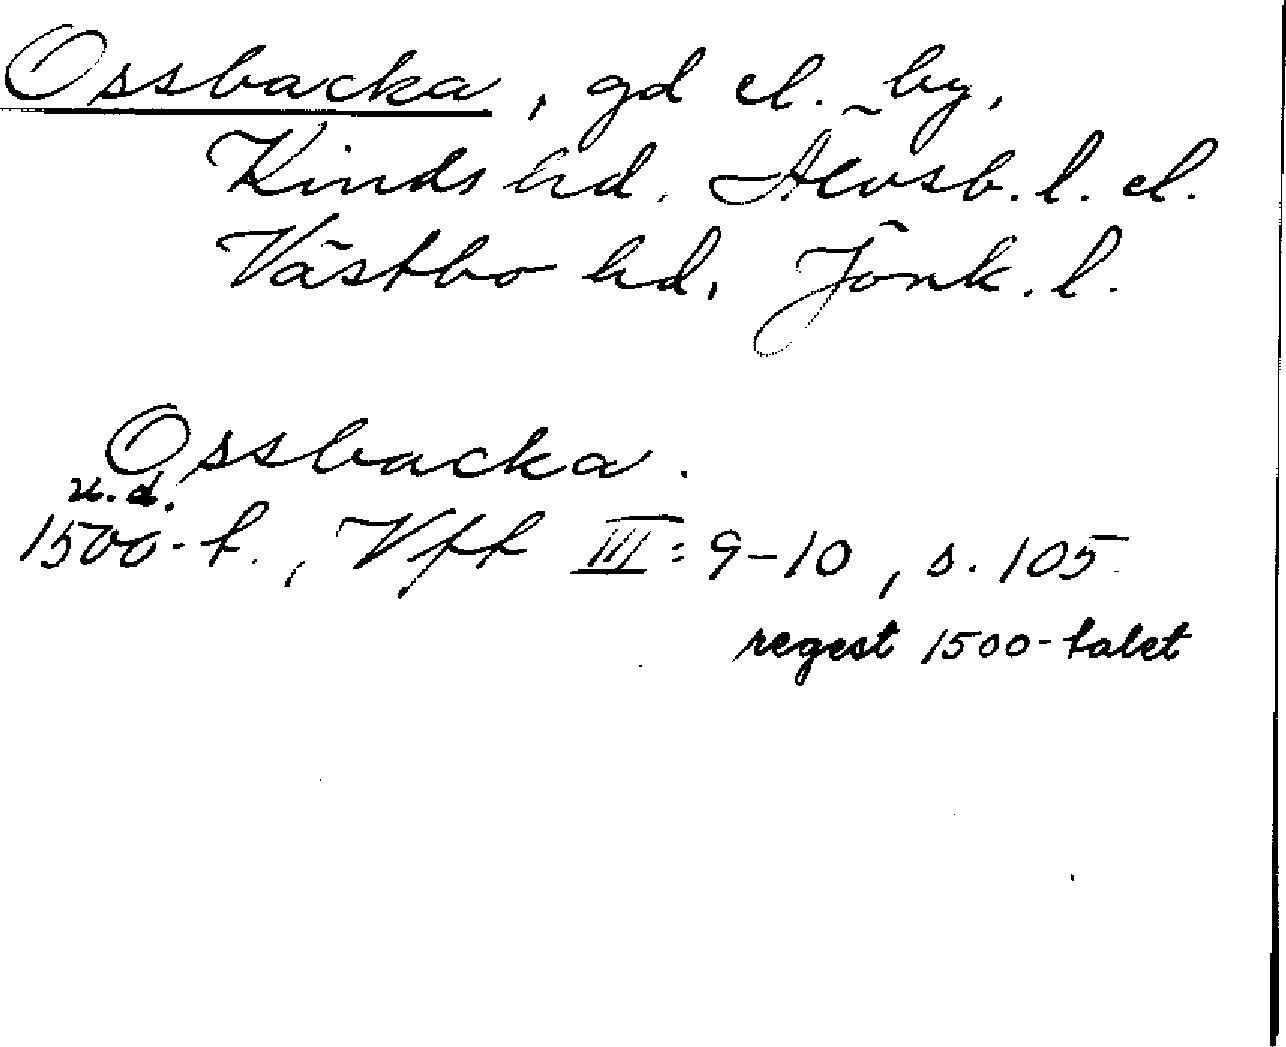 Ossbacka, gd el. by,
Kinds hd. Älvsb. l. el.
Västbo hd, Jönk. l.
Ossbacka.
u.d.
1500-t., Vff III:9-10, s. 105
regest 1500-talet